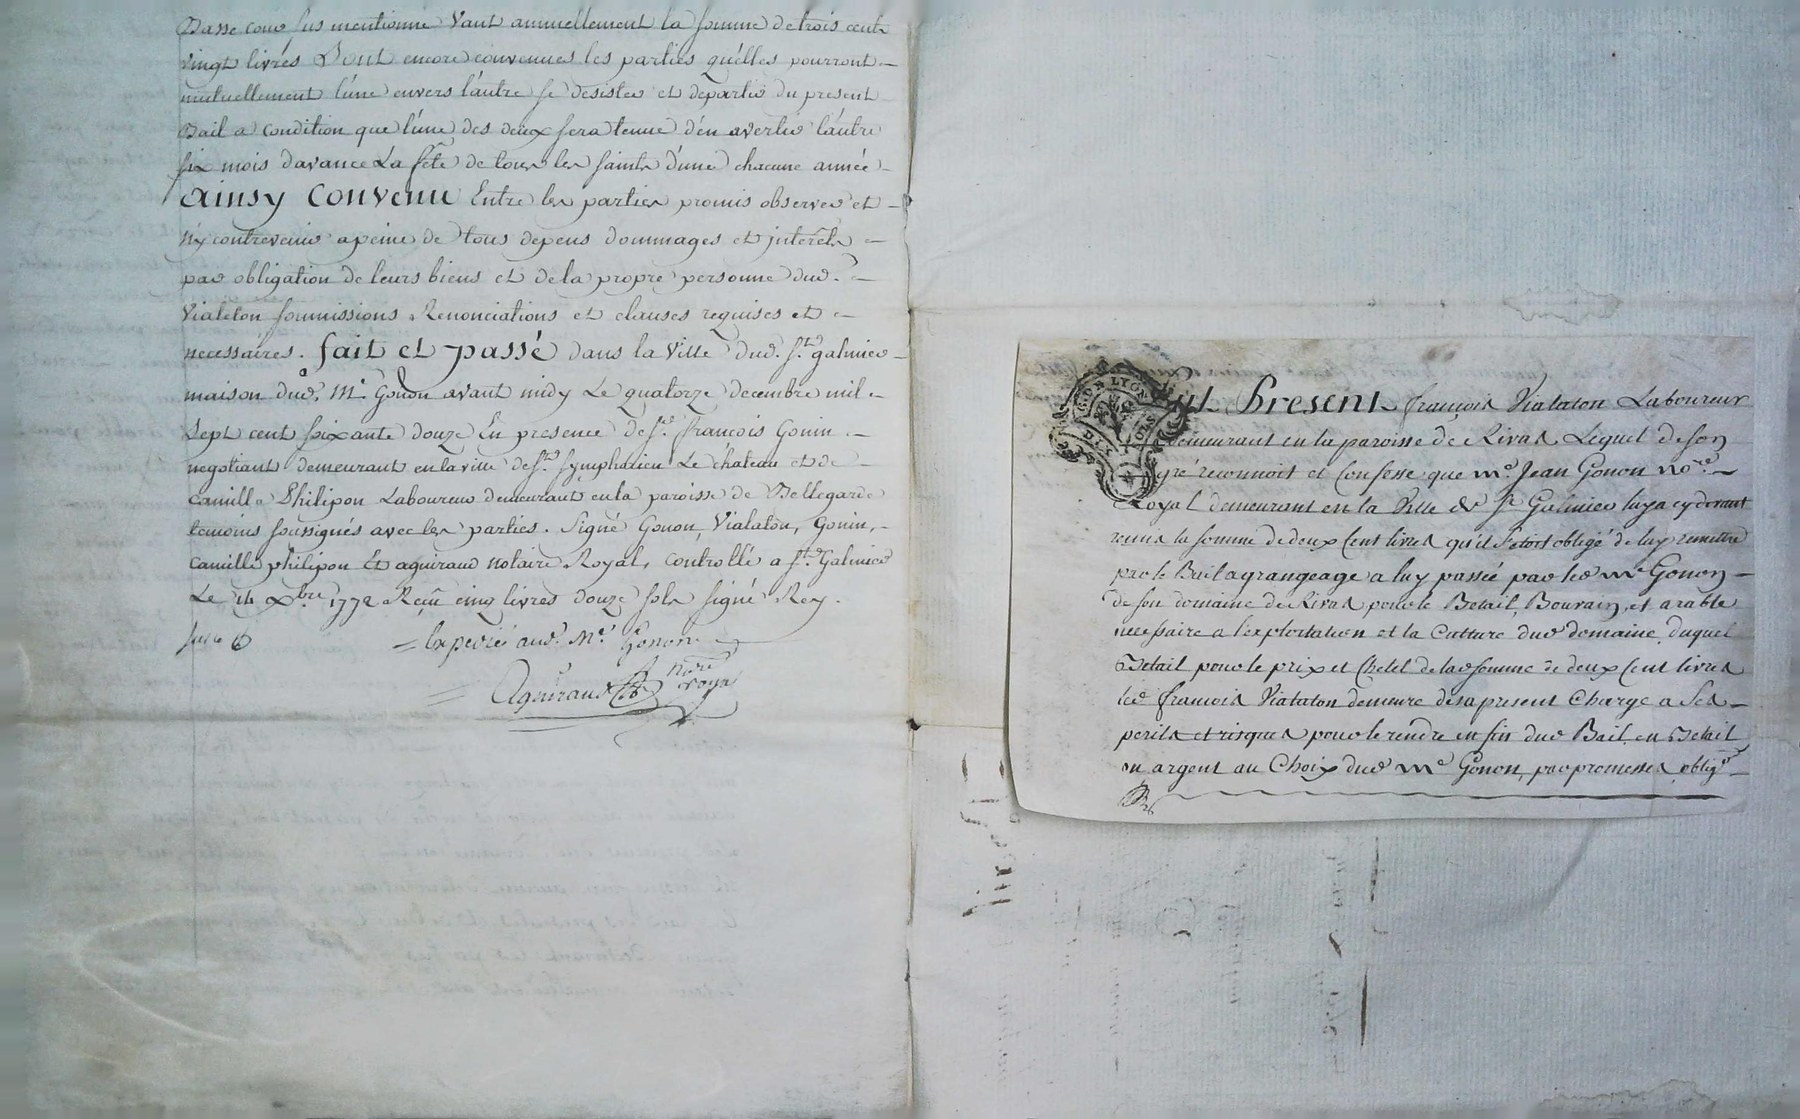 Basse cour sus mentionné Vaut annuellement la somme de trois cents
vingt livres Sont encore convenues les parties qu'elles pourront
mutuellement l'une envers l'autre se desister et departir du present
Bail a condition que l'une des deux sera tenue d'en avertir l'autre
six mois davance La fête de tous les saints d'une chacune année
ainsy convenu Entre les parties promis observer et
n'y contrevenir a peine de tous depens dommages et interêts
par obligation de leurs biens et de la propre personne dud.
Vialeton soumissions Renonciations et clauses requises et
necessaires. fait et passé dans la Ville dud. St. galmier
maison dud. Me. Gonon avant midy Le quatorze decembre mil
sept cent soixante douze En presence de sr. francois Gonin
negotiant demeurant en la ville de St. Symphorien Le chateau et de
camille Philipon Laboureur demeurant en la paroisse de Bellegarde
temoins soussignés avec les parties. Signé Gonon, Vialaton, Gonin,
camille philipon Et aguiraud notaire Royal, controllé a St. Galmier
Le 14 Xbre 1772 Reçu cinq livres douze sols signé Rey.
= Expedié aud. Me. Gonon
= Aguiraud nore royal
G. DE LYON
SOLS
Fut Present françois Vialaton Laboureur
demeurant en la paroisse de Rivas Lequel de son
gré reconnoit et Confesse que me. Jean Gonon nore
Royal demeurant en la Ville de St Galmier luy a cy devant
remis la somme de deux Cent livres qu'il s'etoit obligé de luy remettre
par le Bail a grangeage a luy passée par led me Gonon
de son domaine de Rivas pour le Betail, Bouvain, et arable
necessaire a l'exploitation et la Culture dud domaine, duquel
Betail pour le prix et Chetel de lad somme de deux Cent livres
led françois Vialaton demeure des a present Charge a ses
perils et risques pour le rendre en fin dud Bail en Betail
ou argent au Choix dud me Gonon, par promesses, obligon